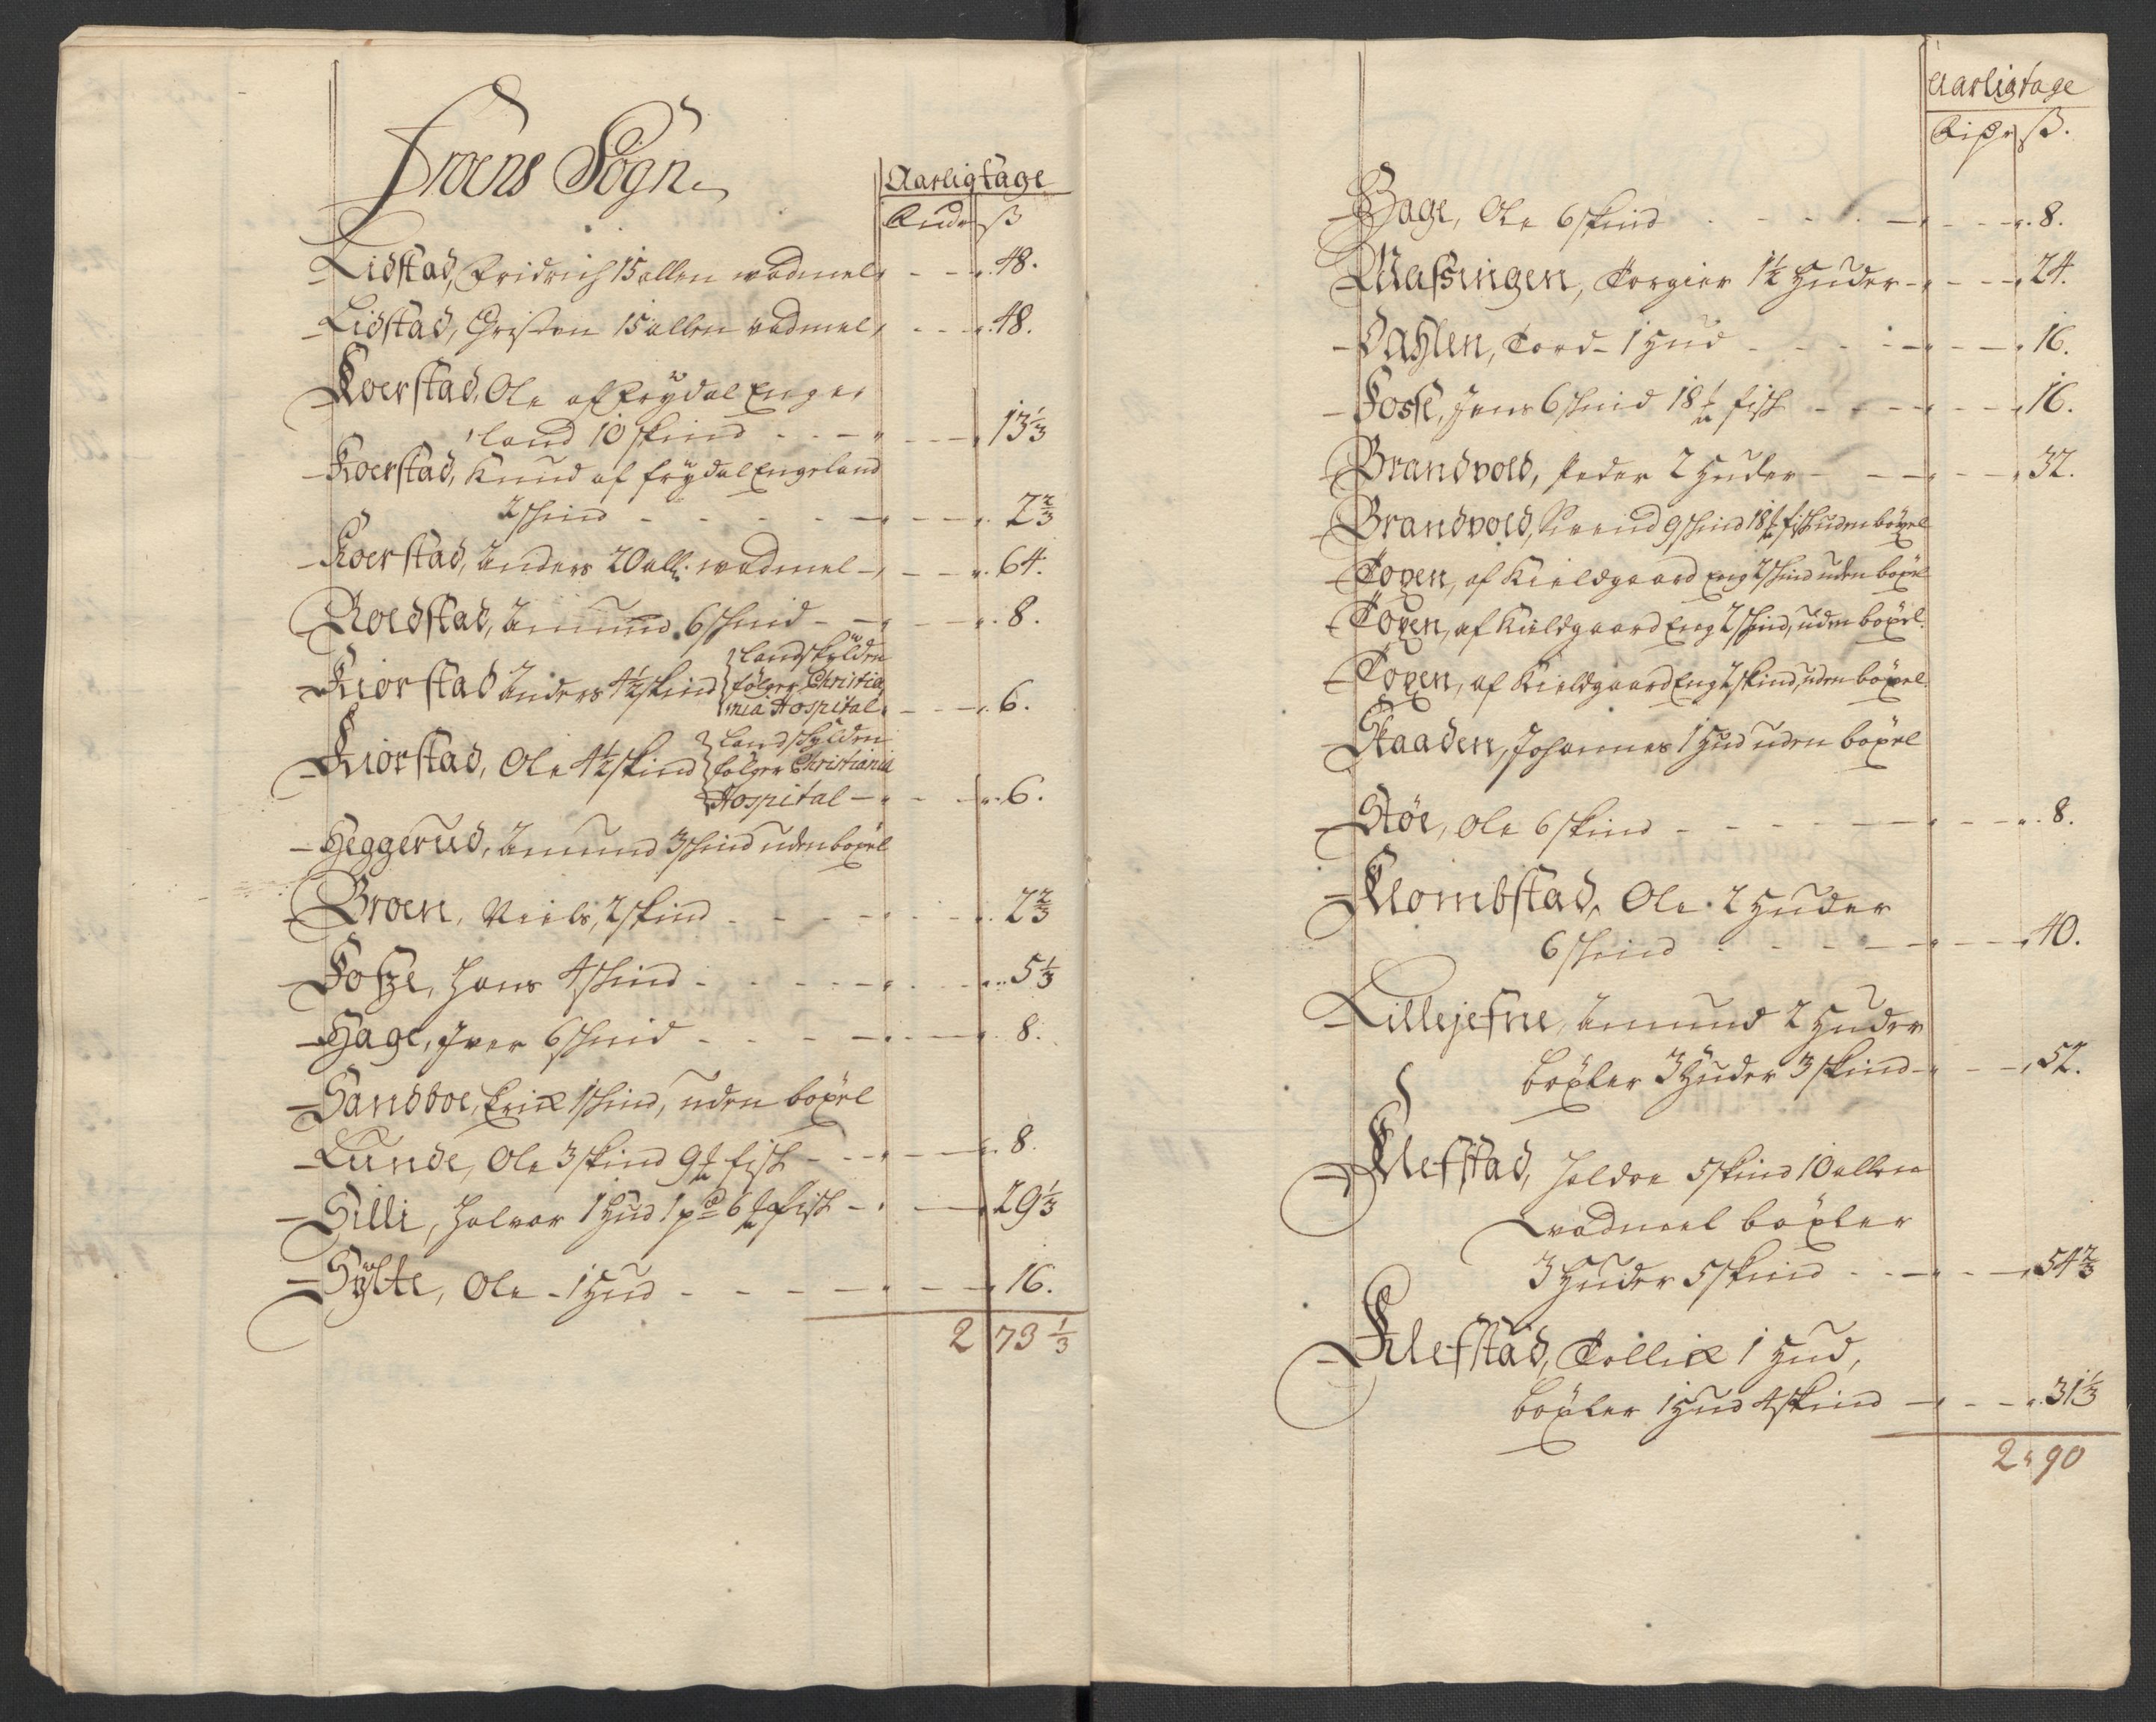 Froens Sogn
Aarligtage
Rixdr ß
Lidstad, Fridrich 15 allen wadmel 48.
Lidstad, Christen 15 allen vadmel 48.
Koerstad, Ole af Frydal Enge
land 10 skind 13 1/3
Koerstad, Knud af frydal Engeland
2 skind 2 2/3
Koerstad, Anders 20 all: wadmel 64.
Roldstad, Amund 6 skind 8.
Kiorstad Anders 4 1/2 skind landskylden
følger Christia
nia Hospital 6.
Kiorstad, Ole 4 1/2 skind landskylden
følger Christiania
Hospital 6.
Heggerud, Amund 3 skind uden boxel
Broen, Niels, 2 skind 2 2/3
Fosze, Hans 4 skind 5 1/3
Hage, Iver 6 skind 8.
Sandboe, Erik 1 skind, uden boxel
Lunde, Ole 3 skind 9 ℔ fisk 8.
Silli, Halvor 1 Hud 1 pd 6 ℔ fisk 29 1/3
Sylte, Ole 1 Hud 16.
2 73 1/3
Aarligtage
Rixdr ß.
Hage, Ole 6 skind 8.
Massingen, Torgier 1 1/2 Huder 24.
Dahlen, Tord 1 Hud 16.
Fosse, Jens 6 skind 18 ℔ fisk 16.
Brandvold, Peder 2 Huder 32.
Brandvold, Svend 9 skind 18 ℔ fisk uden böxel
Toxen, af Kieldgaard Eng 2 skind uden boxel
Toxen, af Kieldgaard Eng 2 skind, uden boxel.
Toxen, af Kieldgaard Eng 2 skind, uden boxel.
Skaaden, Johannes 1 Hud uden boxel
Støe, Ole 6 skind 8.
Klombstad, Ole 2 Huder
6 skind 40.
Lillejefne, Amund 2 Huder
boxler 3 Huder 3 skind 52.
Klefstad, Haldor 5 skind 10 allen
vadmel boxler
3 Huder 5 skind 54 2/3
Klefstad, Tollix 1 Hud,
boxler 1 Hud 4 skind 31 1/3
2 90